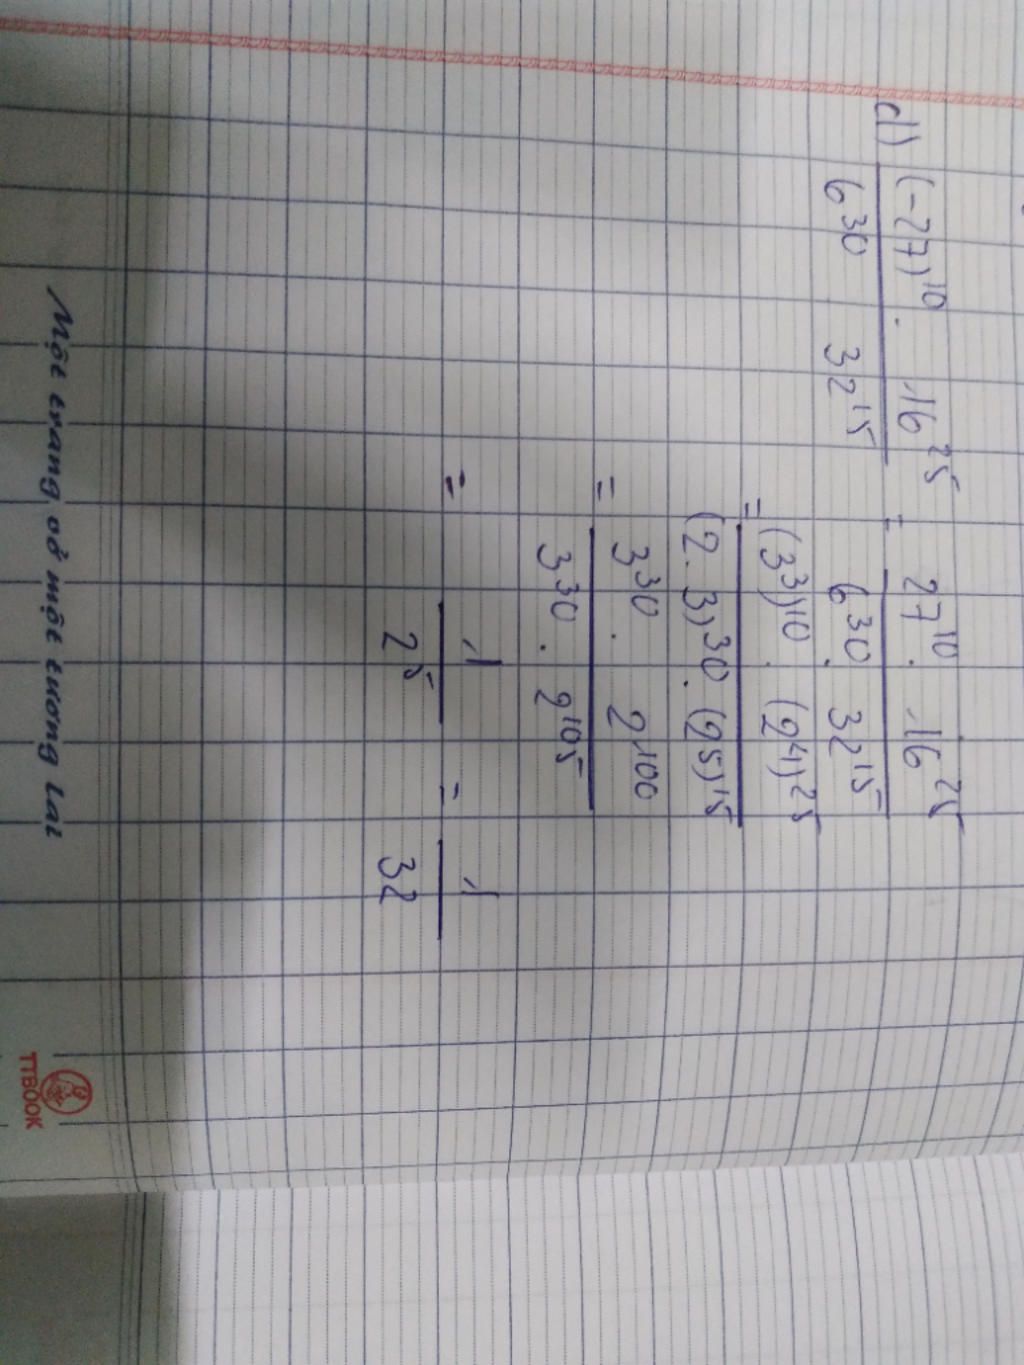 d) (-27)^10 . 16^25 / 6^30 32^15 = 27^10 . 16^25 / 6^30 . 32^15
= (3^3)^10 . (2^4)^25 / (2 . 3)^30 . (2^5)^15
= 3^30 . 2^100 / 3^30 . 2^105
= 1 / 2^5 = 1 / 32
Một trang vở một tương lai
TTBOOK